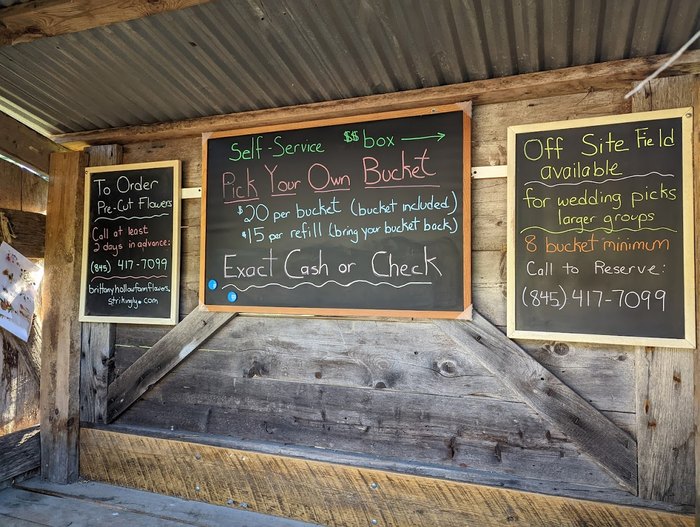 To Order
Pre-Cut Flowers
Call at least
2 days in advance:
(845) 417-7099
brittanyhollowfarmflowers.
strikingly.com
Self-Service $$ box
Pick Your Own Bucket
$20 per bucket (bucket included)
$15 per refill (bring your bucket back)
Exact Cash or Check
Off Site Field
available
for wedding picks
larger groups
8 bucket minimum
Call to Reserve:
(845) 417-7099